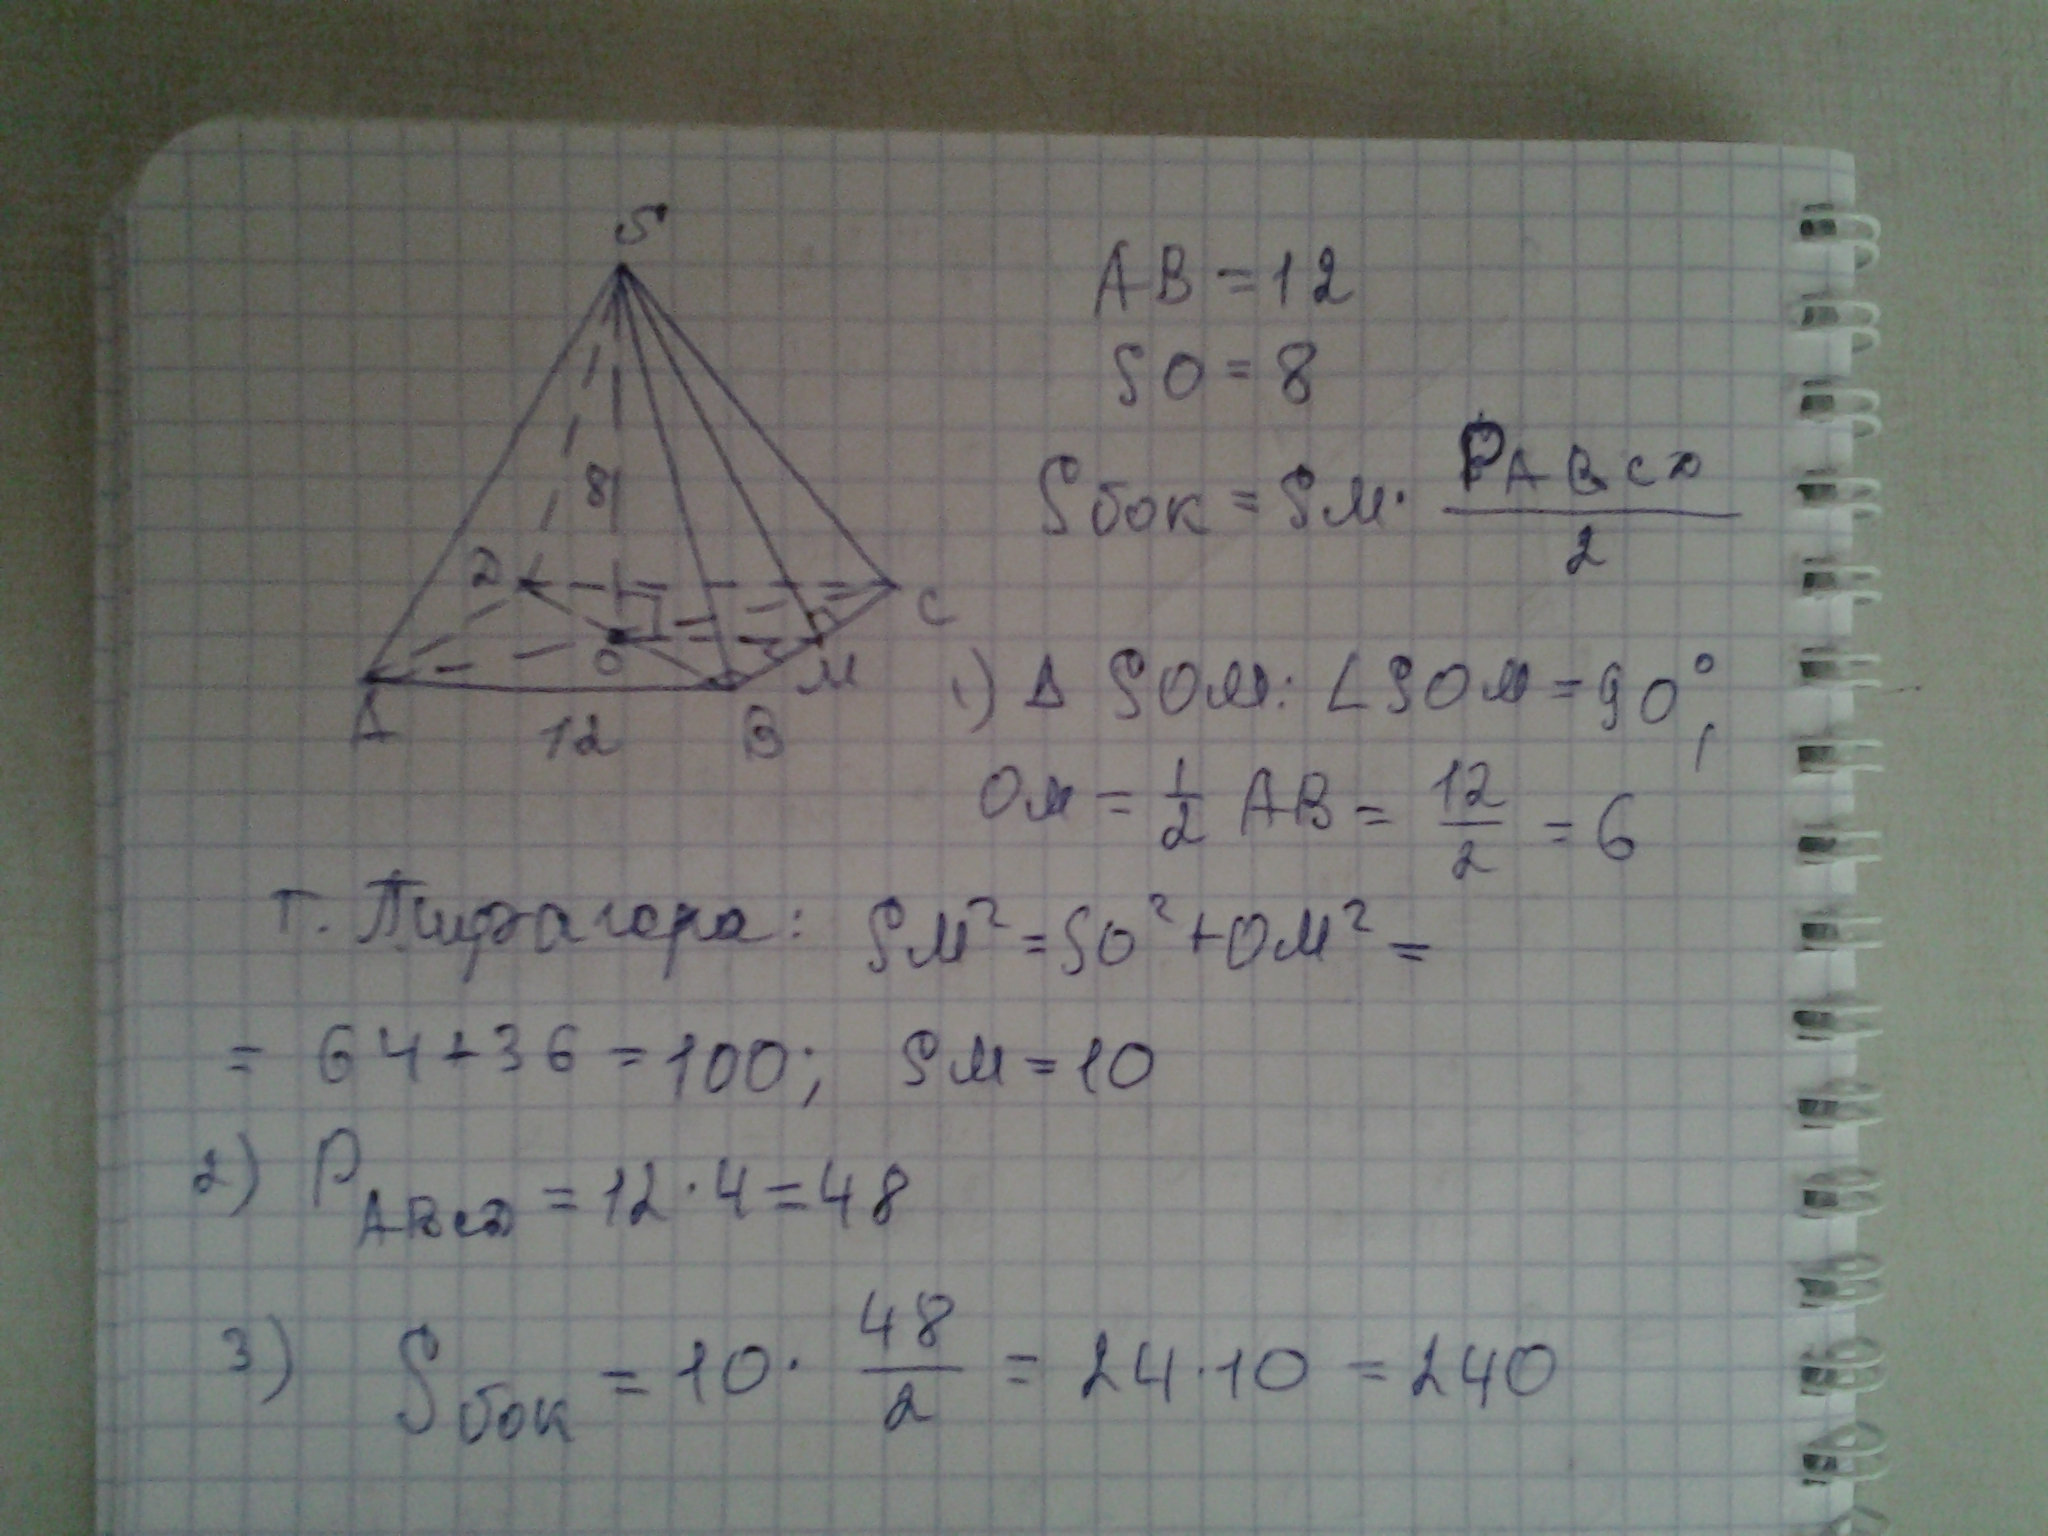 S
8
D
C
O
M
A
12
B
AB = 12
SO = 8
Sбок = SM · P_ABCD / 2
1) Δ SOM: ∠SOM = 90°,
OM = 1/2 AB = 12/2 = 6
т. Пифагора: SM² = SO² + OM² =
= 64 + 36 = 100; SM = 10
2) P_ABCD = 12 · 4 = 48
3) Sбок = 10 · 48/2 = 24 · 10 = 240